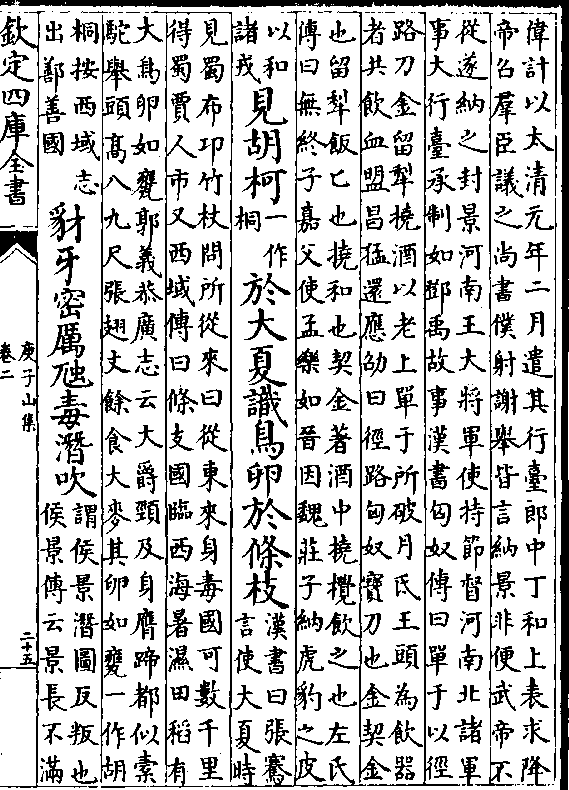 偉計以太清元年二月遣其行臺郎中丁和上表求降
帝召羣臣議之尚書僕射謝舉皆言納景非便武帝不
從遂納之封景河南王大將軍使持節督河南北諸軍
事大行臺承制如鄧禹故事漢書匈奴傳曰單于以徑
路刀金留犁撓酒以老上單于所破月氏王頭為飲器
者共飲血盟昌猛還應劭曰徑路匈奴寶刀也金契金
也留犁飯匕也撓和也契金著酒中撓攪飲之也左氏
傳曰無終子嘉父使孟樂如晉因魏莊子納虎豹之皮
以和
諸戎
見胡柯
一作
桐
於大夏識鳥卵於條枝
漢書曰張騫
言使大夏時
見蜀布邛竹杖問所從來曰從東來身毒國可數千里
得蜀賈人市又西域傳曰條支國臨西海暑濕田稻有
大鳥卵如甕郭義恭廣志云大爵頸及身膺蹄都似橐
駝舉頭高八九尺張翅丈餘食大麥其卵如甕一作胡
桐按西域志
出鄯善國
豺牙密厲虺毒潛吹
謂侯景潛圖反叛也
侯景傳云景長不滿
欽定四庫全書
庾子山集
卷二
二十五